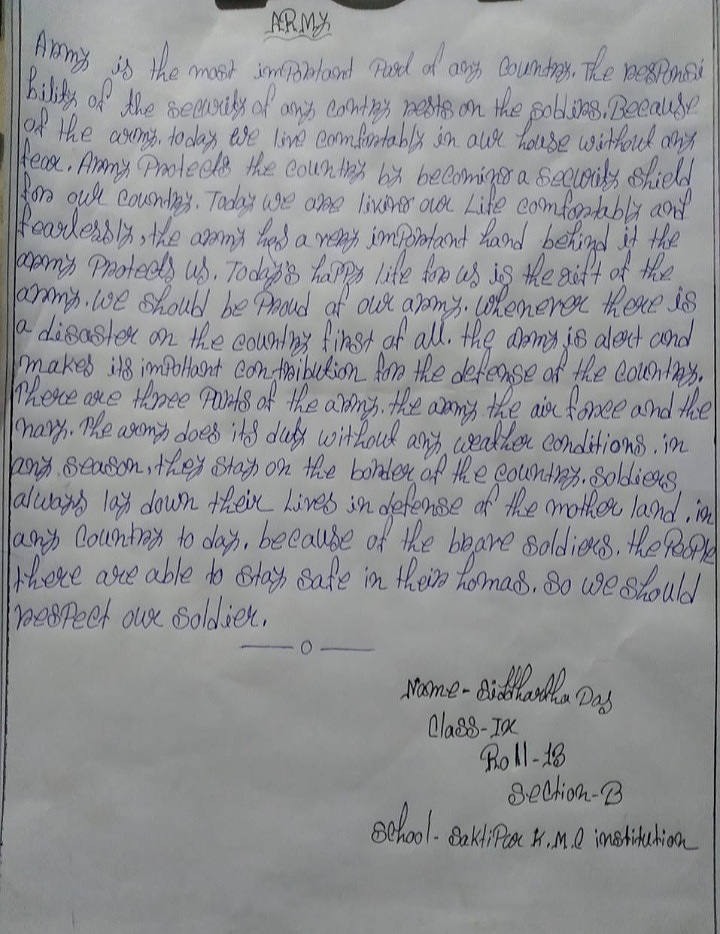 ARMY
Army is the most important Pard of any Country. The responsi
bility of the security of any contry rests on the soldiers. Because
of the army. today we live comfortably in our house without any
fear. Army Protects the country by becoming a security shield
for our country. Today we are living our Life comfortably and
fearlessly, the army has a very important hand behind it the
army Protects us. Today's happy life for us is the gift of the
army. we should be Proud of our army. Whenever there is
a disaster on the country first of all. the army is alert and
makes its impottant contribution for the defense of the country.
There are three Parts of the army. the army the air force and the
navy. The army does its duty without any weather conditions. in
any season, they stay on the border of the country. Soldiers
always lay down their Lives in defense of the mother land. in
any Country to day. because of the brave soldiers. the People
there are able to stay safe in their homas. So we should
respect our soldier.
—— 0 ——
Name - Siddhartha Das
Class - IX
Roll - 13
Section - B
School - Saktipur K.M.C institution